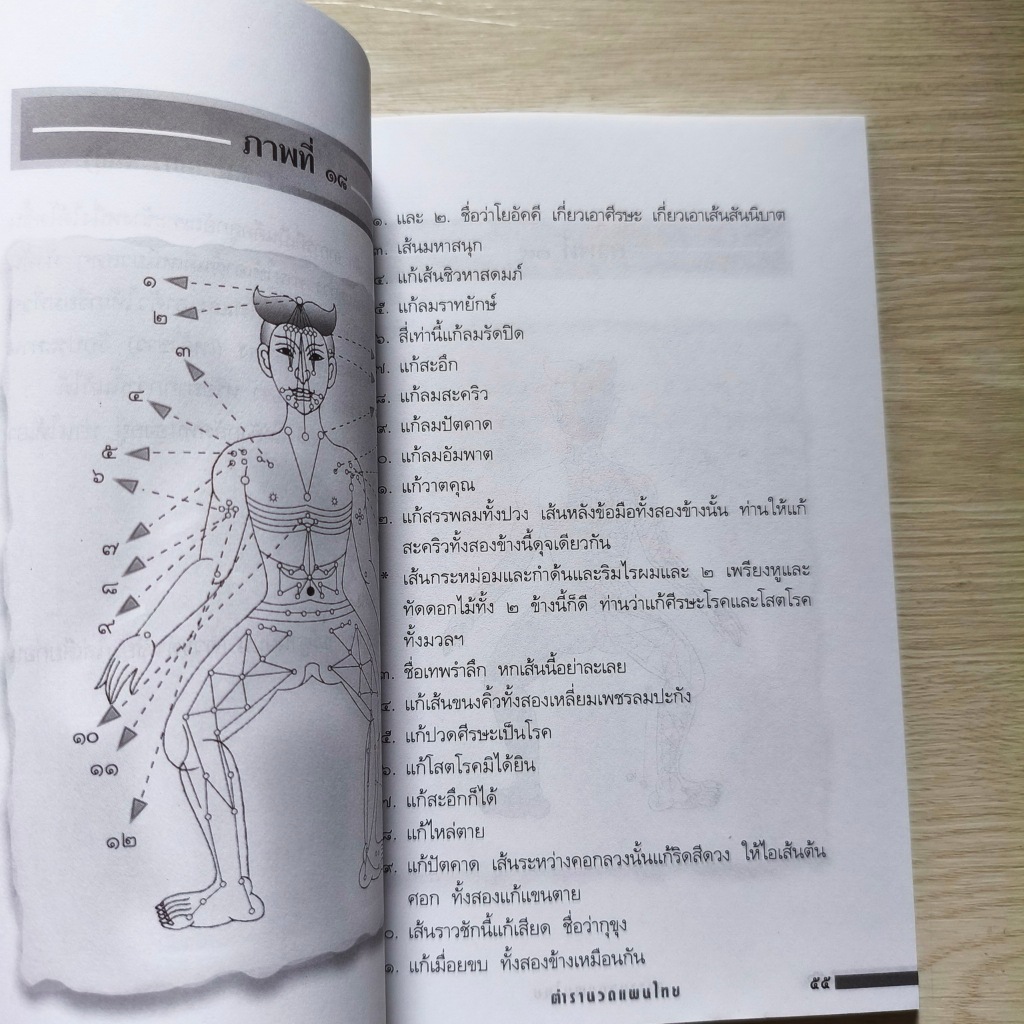 ภาพที่ ๑๘
๑
๒
๓
๔
๕
๖
๗
๘
๙
๑๐
๑๑
๑๒
๑. และ ๒. ชื่อว่าโยอัคคี เกี่ยวเอาศีรษะ เกี่ยวเอาเส้นสันนิบาต
๓. เส้นมหาสนุก
๔. แก้เส้นชิวหาสดมภ์
๕. แก้ลมราทยักษ์
๖. สี่เท่านี้แก้ลมรัดปิด
๗. แก้สะอึก
๘. แก้ลมสะคริว
๙. แก้ลมปัตคาด
๐. แก้ลมอัมพาต
๑. แก้วาตคุณ
๒. แก้สรรพลมทั้งปวง เส้นหลังข้อมือทั้งสองข้างนั้น ท่านให้แก้
สะคริวทั้งสองข้างนี้ดุจเดียวกัน
* เส้นกระหม่อมและกำด้นและริมไรผมและ ๒ เพรียงหูและ
ทัดดอกไม้ทั้ง ๒ ข้างนี้ก็ดี ท่านว่าแก้ศีรษะโรคและโสตโรค
ทั้งมวลฯ
๓. ชื่อเทพรำลึก หกเส้นนี้อย่าละเลย
๔. แก้เส้นขนงคิ้วทั้งสองเหลี่ยมเพชรลมปะกัง
๕. แก้ปวดศีรษะเป็นโรค
๖. แก้โสตโรคมิได้ยิน
๗. แก้สะอึกก็ได้
๘. แก้ไหล่ตาย
๙. แก้ปัตคาด เส้นระหว่างคอกลวงนั้นแก้ริดสีดวง ให้ไอเส้นต้น
ศอก ทั้งสองแก้แขนตาย
๐. เส้นราวชักนี้แก้เสียด ชื่อว่ากุขุง
๑. แก้เมื่อยขบ ทั้งสองข้างเหมือนกัน
ตำรานวดแผนไทย ๕๕